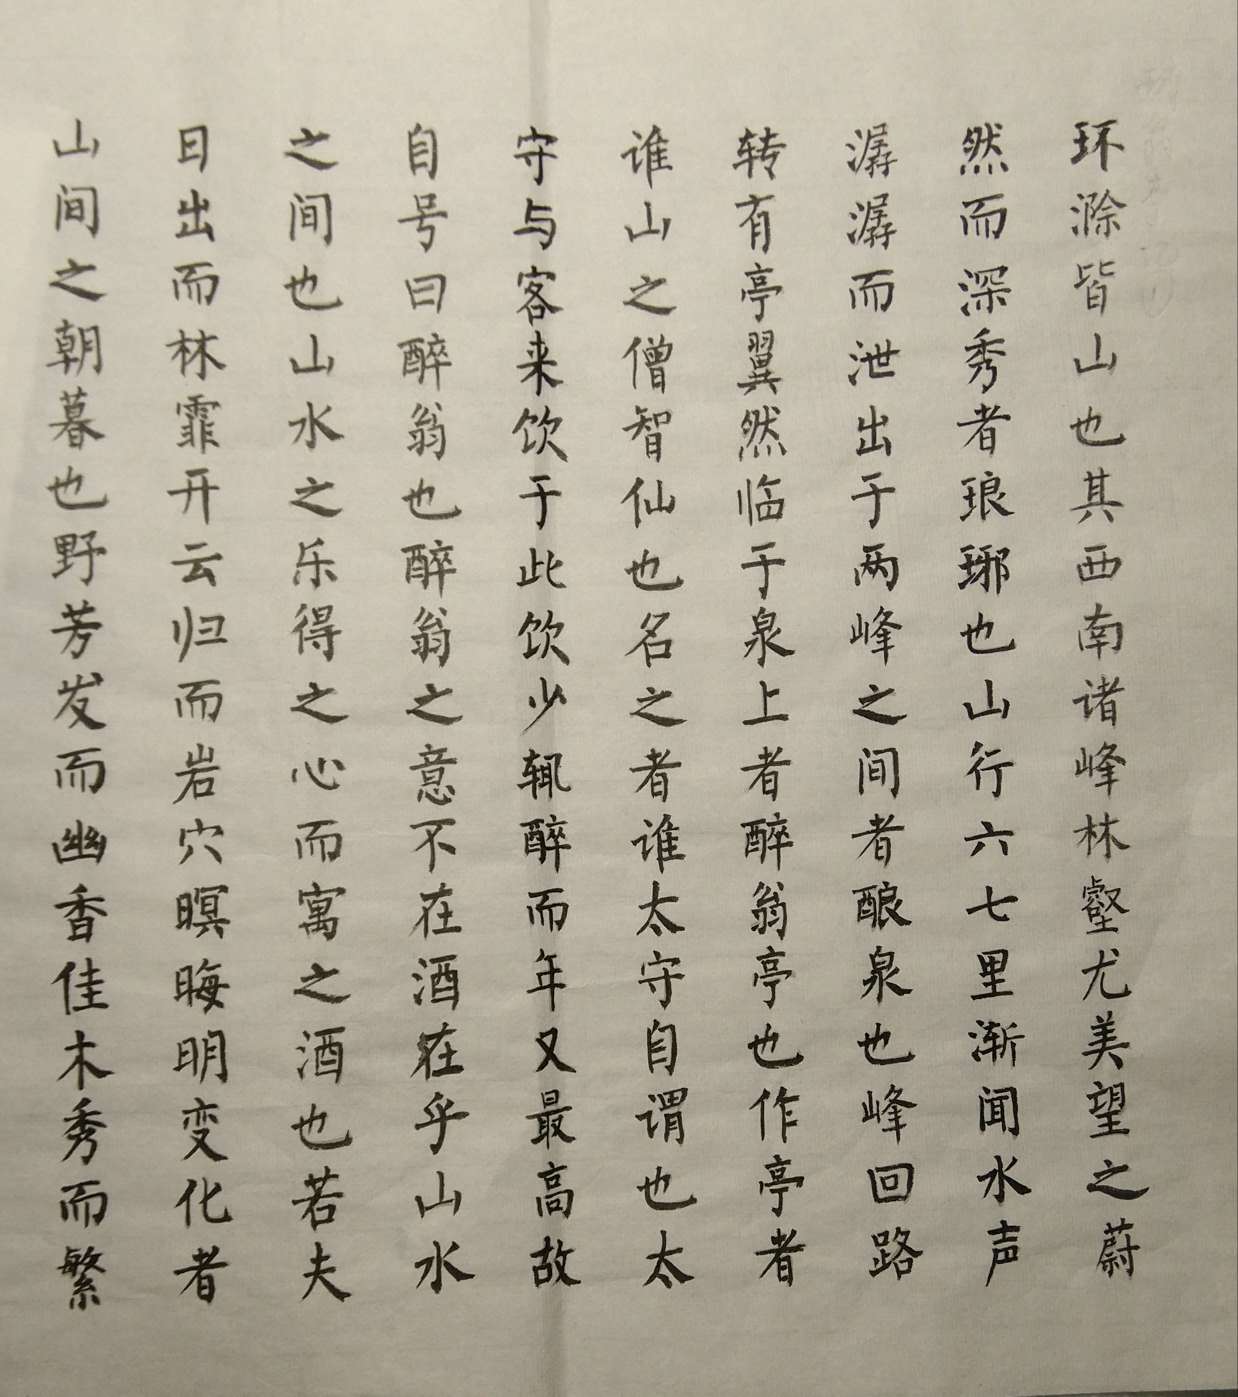 环滁皆山也其西南诸峰林壑尤美望之蔚
然而深秀者琅琊也山行六七里渐闻水声
潺潺而泄出于两峰之间者酿泉也峰回路
转有亭翼然临于泉上者醉翁亭也作亭者
谁山之僧智仙也名之者谁太守自谓也太
守与客来饮于此饮少辄醉而年又最高故
自号曰醉翁也醉翁之意不在酒在乎山水
之间也山水之乐得之心而寓之酒也若夫
日出而林霏开云归而岩穴暝晦明变化者
山间之朝暮也野芳发而幽香佳木秀而繁